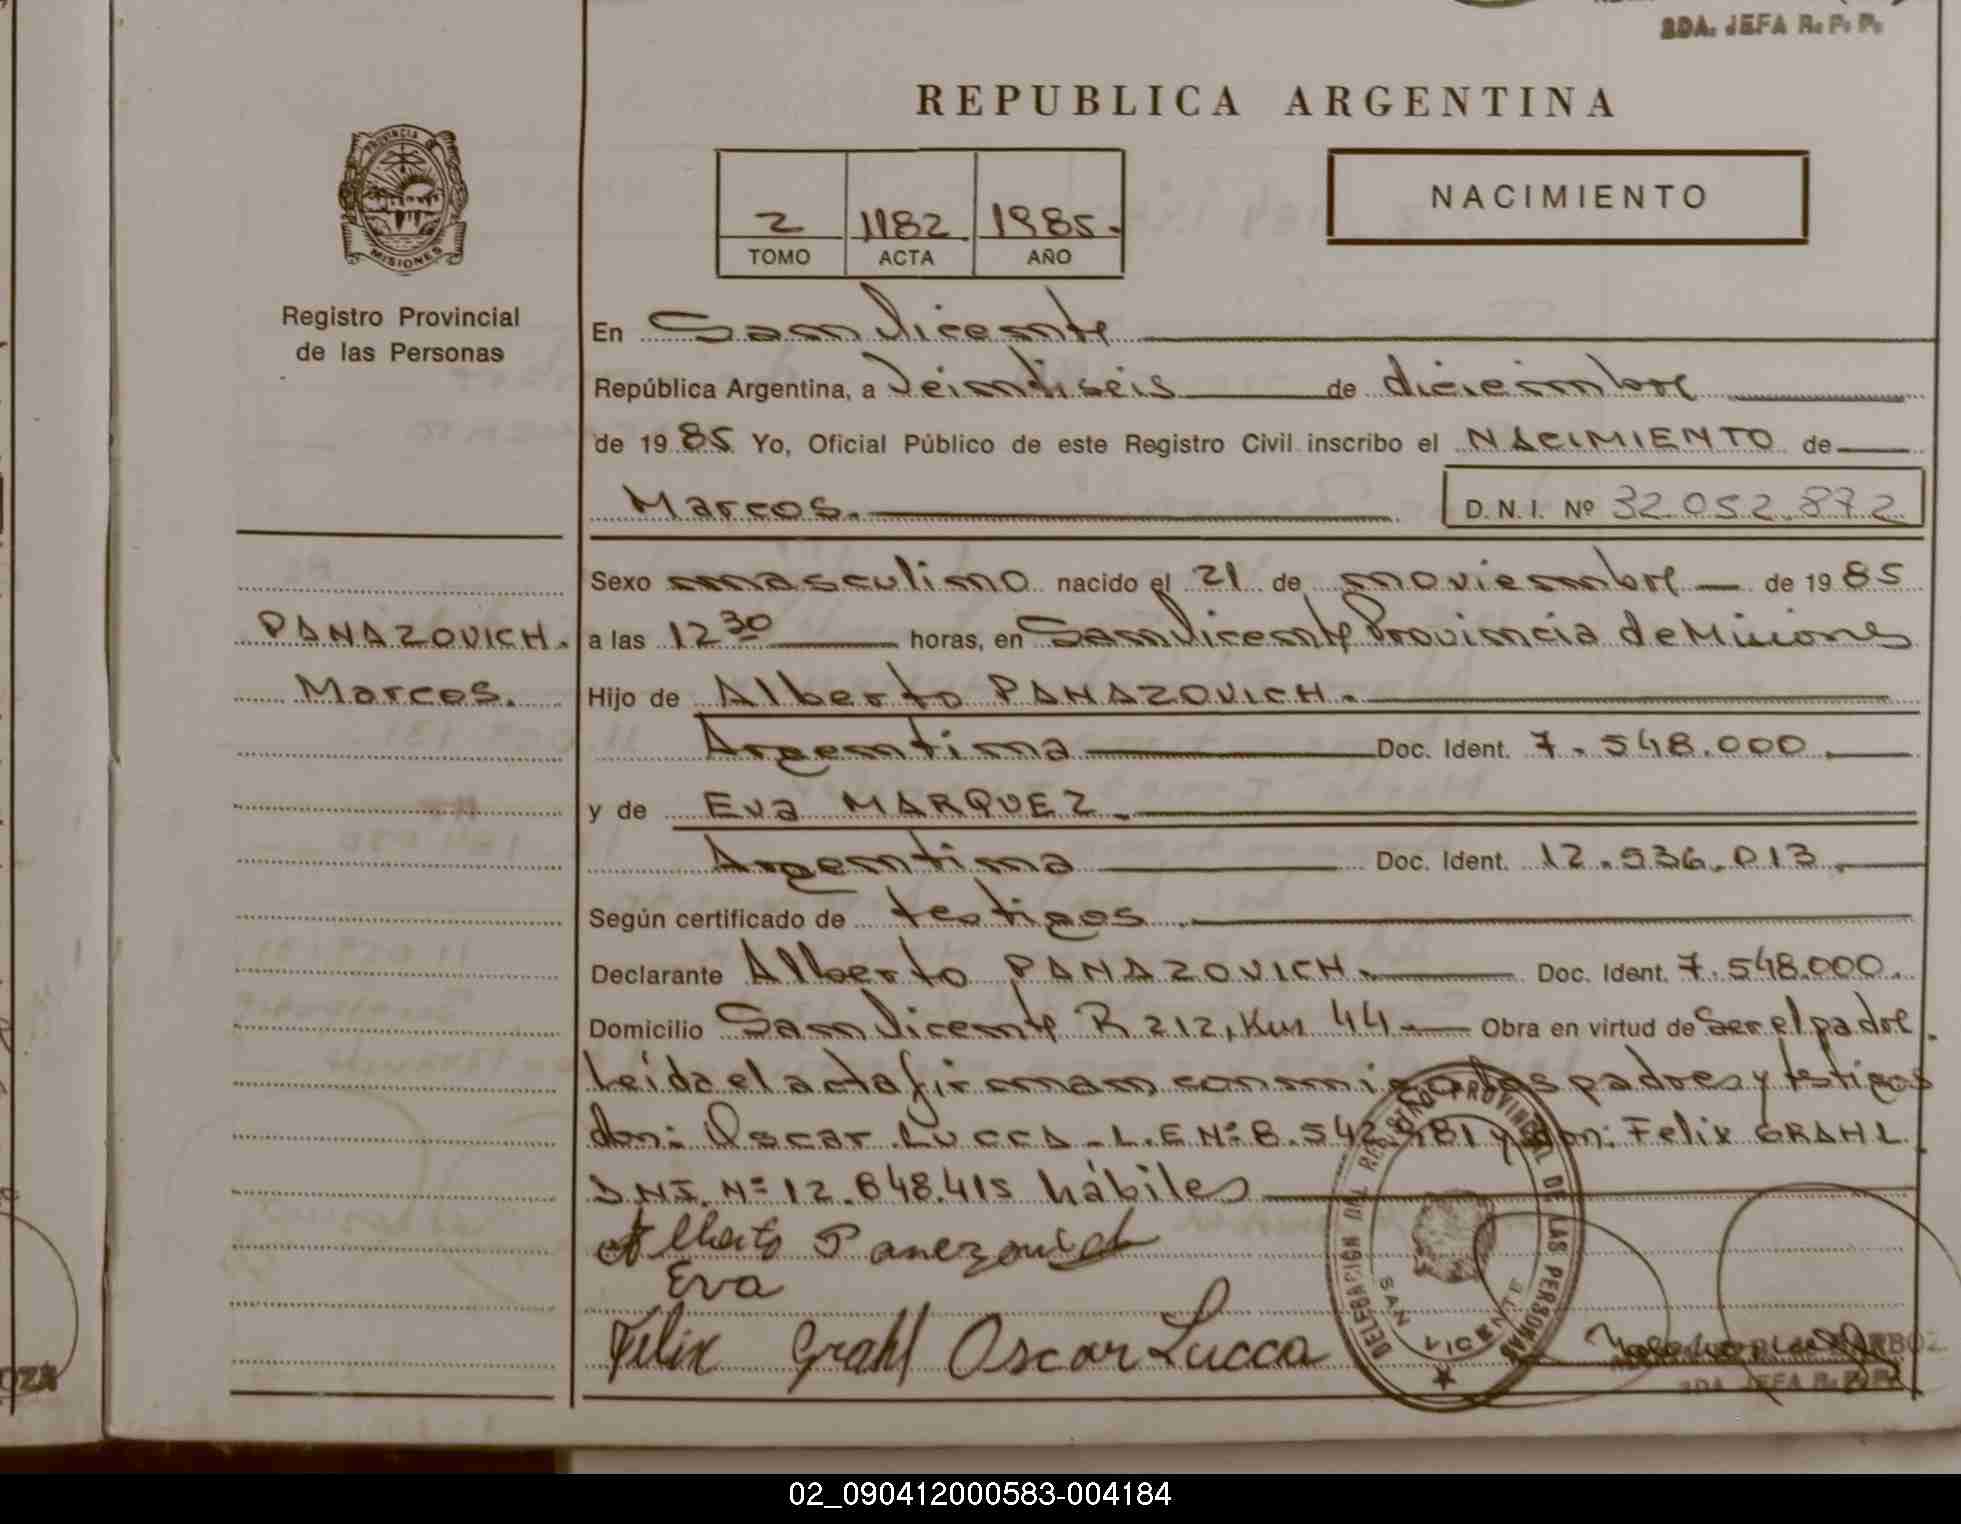 2DA. JEFA R. P. P.
REPUBLICA ARGENTINA
PROVINCIA
MISIONES
NACIMIENTO
2 1182 1985.
TOMO ACTA AÑO
Registro Provincial
de las Personas
En San Vicente
República Argentina, a Veintiseis de diciembre
de 1985 Yo, Oficial Público de este Registro Civil inscribo el NACIMIENTO de
Marcos. D. N. I. Nº 32.052.872
Sexo masculino nacido el 21 de noviembre de 1985
PANAZOVICH.
a las 12 30 horas, en San Vicente Provincia de Misiones
Marcos.
Hijo de Alberto PANAZOVICH.
Argentina Doc. Ident. 7.548.000.
y de Eva MARQUEZ.
Argentina Doc. Ident. 12.536.013.
Según certificado de testigos.
Declarante Alberto PANAZOVICH. Doc. Ident. 7.548.000.
Domicilio San Vicente R 212, Km 44. Obra en virtud de Ser el padre.
Leída el acta firman conmigo los padres y testigos
don: Oscar LUCCA - L.E Nº 8.542.481 y don: Felix GRAHL.
D.N.I. Nº 12.648.415 hábiles
Alberto Panezovich
Eva
Felix Grahl Oscar Lucca
DELEGACIÓN DEL REGISTRO PROVINCIAL DE LAS PERSONAS
SAN VICENTE
2DA. JEFA R. P. P.
02_090412000583-004184